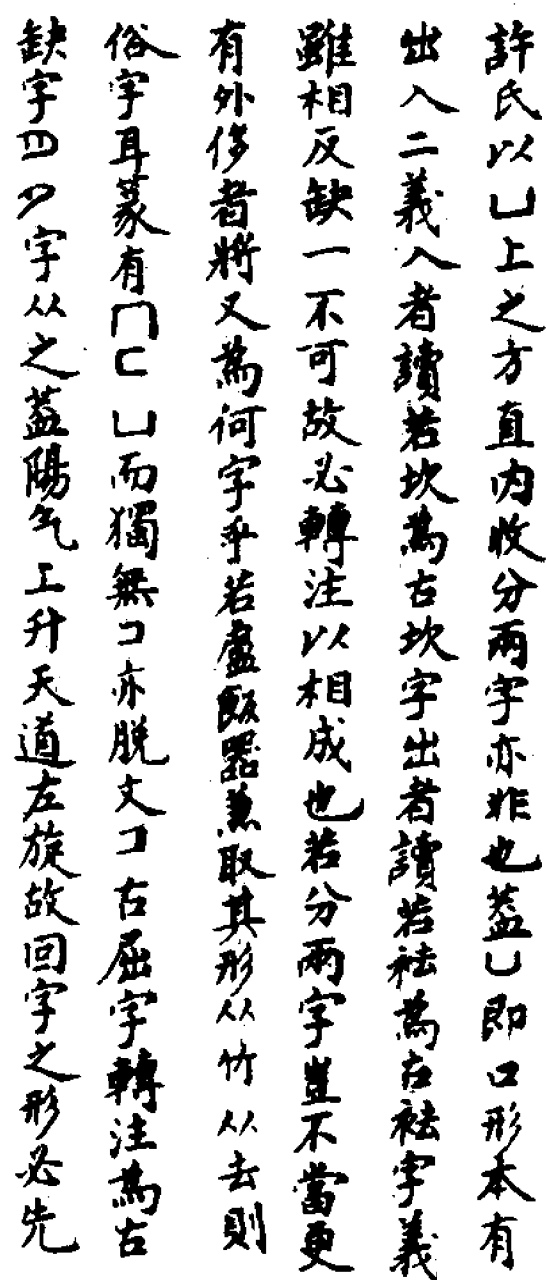 許氏以凵上之方直內收分兩字亦非也蓋凵即口形本有
出入二義入者讀若坎為古坎字出者讀若祛為古祛字義
雖相反缺一不可故必轉注以相成也若分兩字豈不當更
有外侈者將又為何字乎若盧飯器兼取其形从竹从去則
俗字耳篆有冂匚凵而獨無コ亦脫文コ古屈字轉注為古
缺字叵夕字从之蓋陽气上升天道左旋故回字之形必先